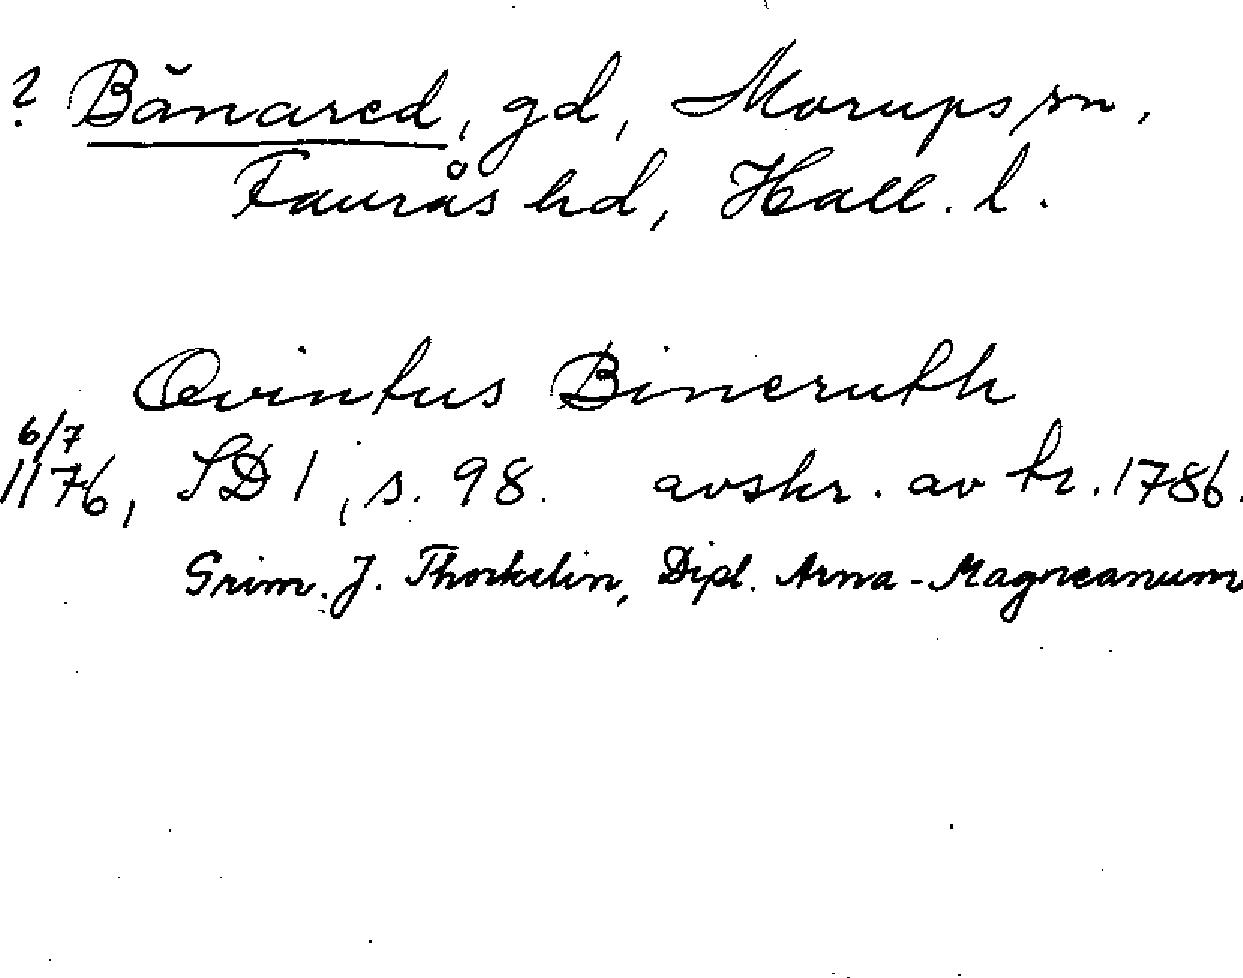 ? Bănared, gd, Morups sn,
Faurås hd, Hall. l.
Qvintus Bineruth
6/7
1176, SD 1, s. 98. avskr. av tr. 1786.
Grim. J. Thorkelin, Dipl. Arna-Magneanum